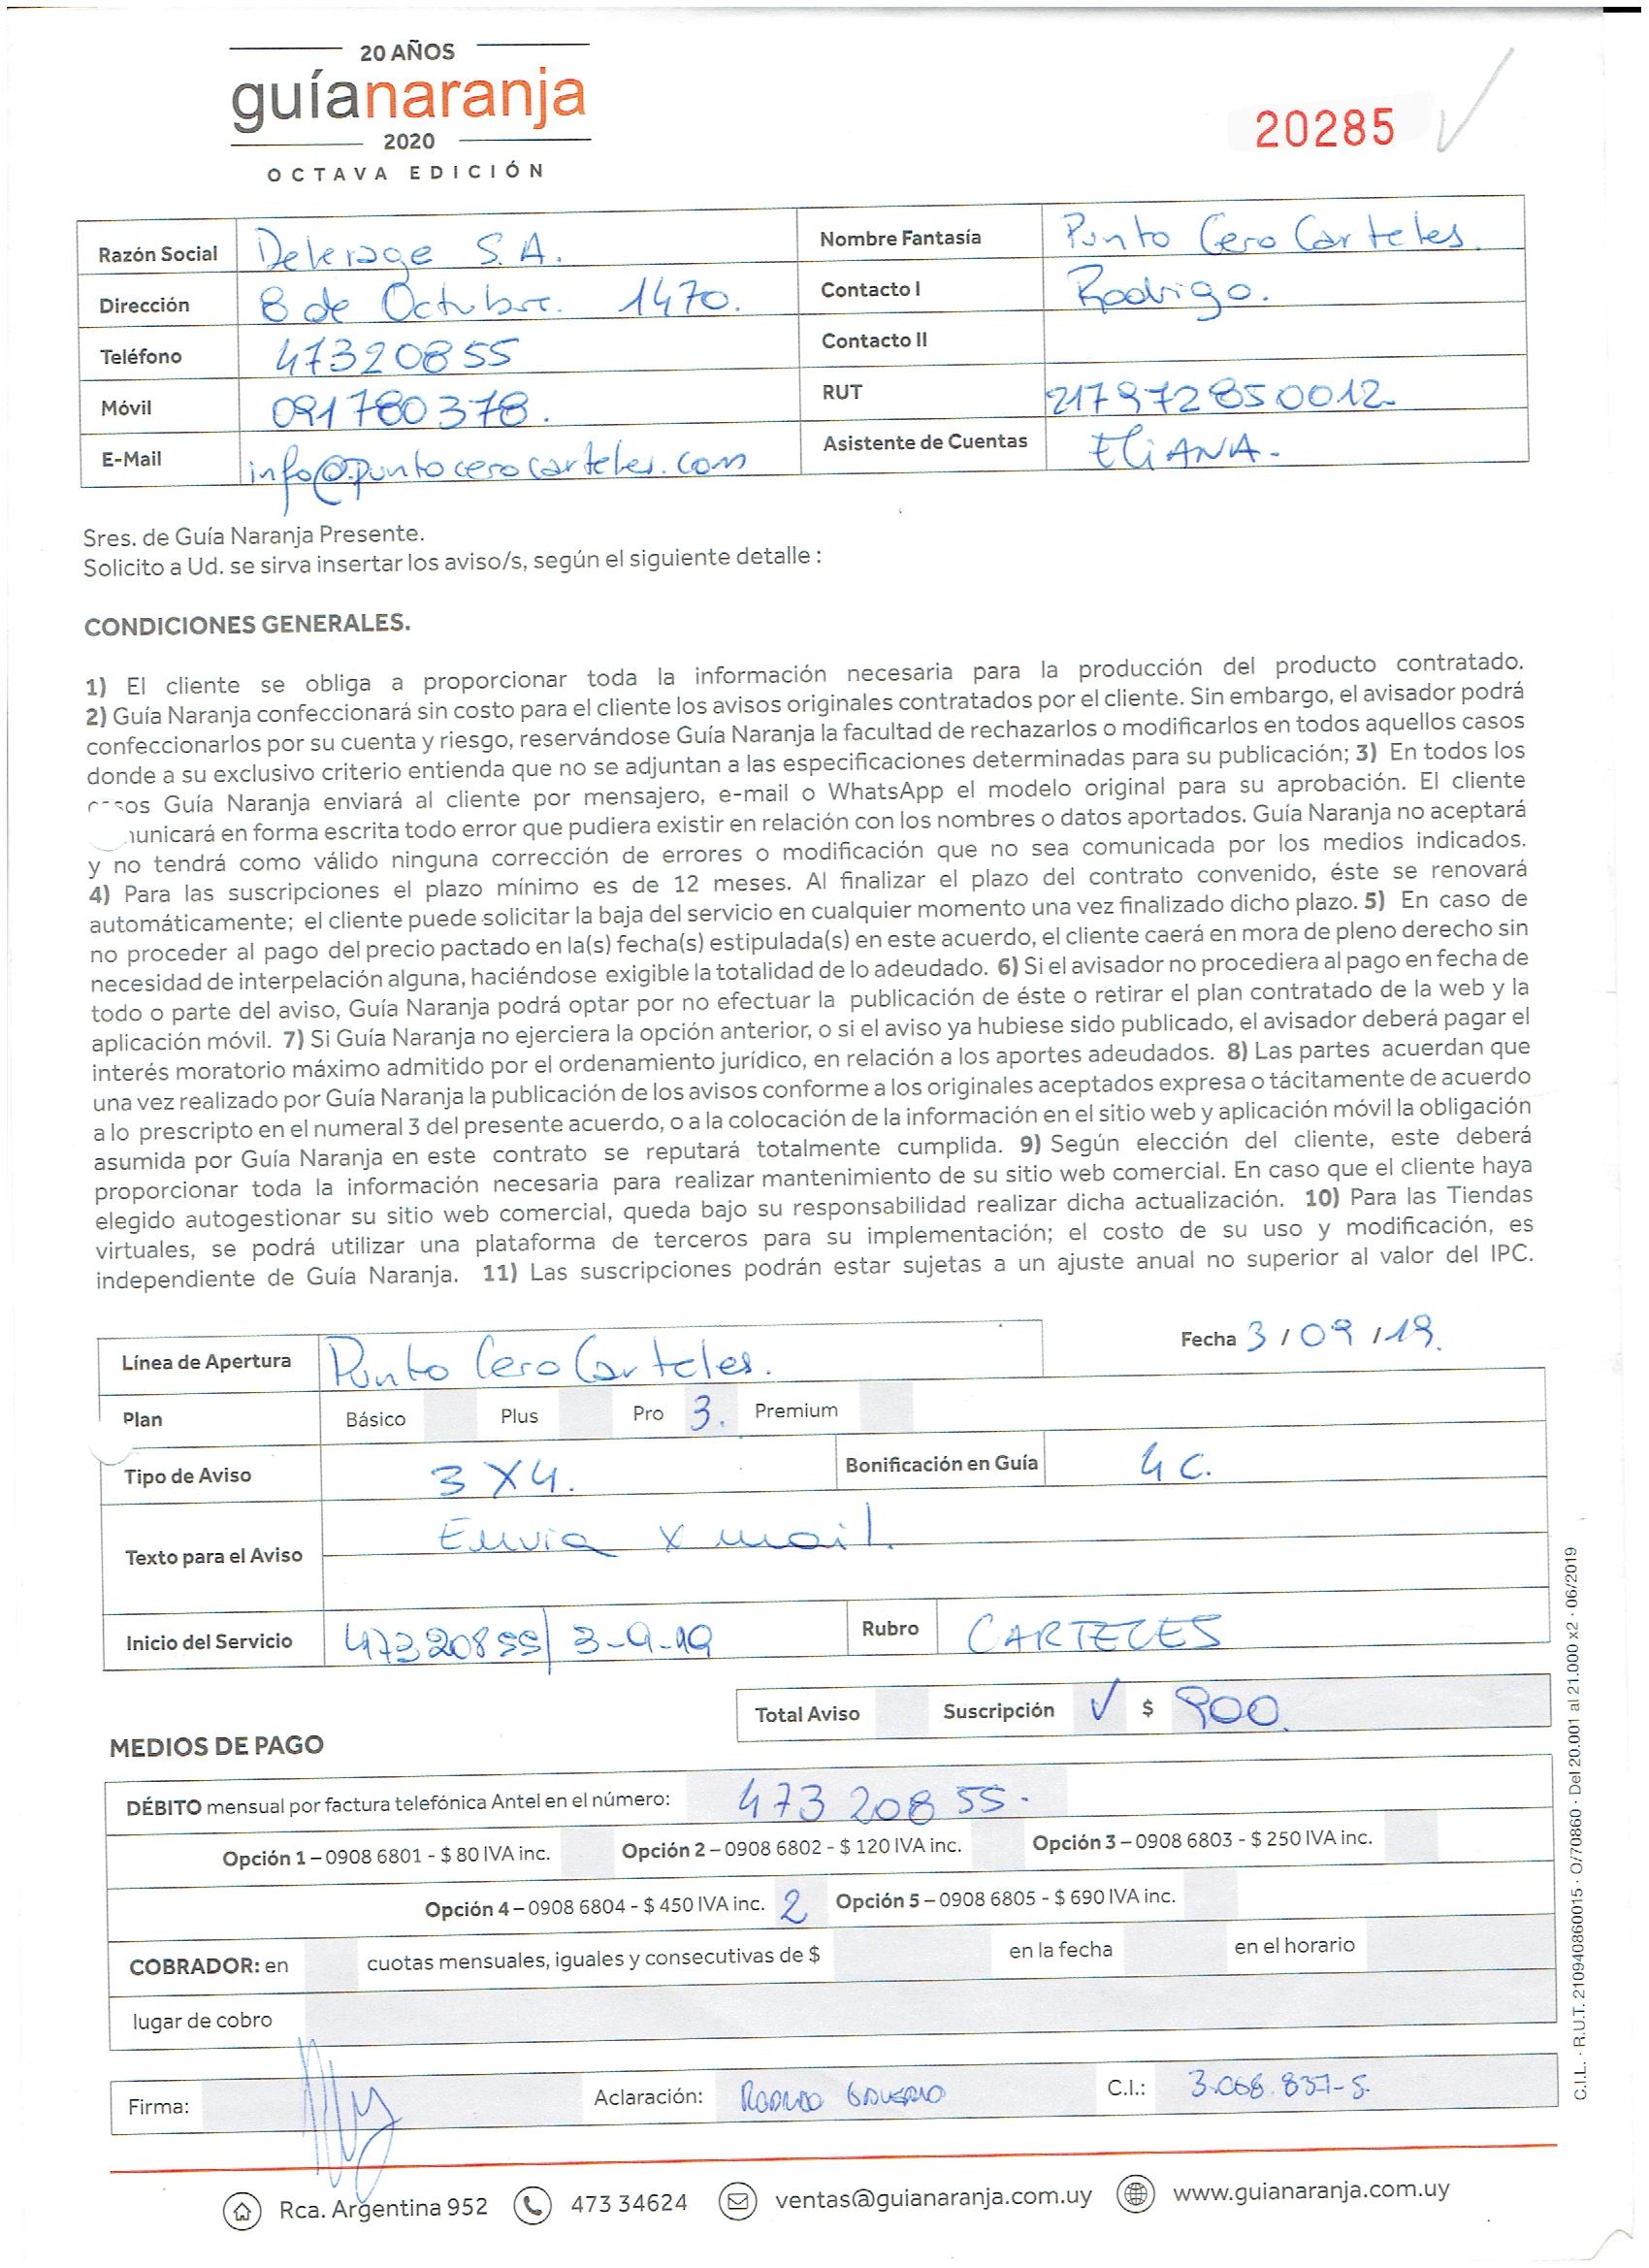 20 AÑOS
guíanaranja
2020
OCTAVA EDICIÓN
20285
Razón Social Delerage S.A. Nombre Fantasía Punto Cero Carteles.
Dirección 8 de Octubre. 1470. Contacto I Rodrigo.
Teléfono 47320855 Contacto II
Móvil 091780378. RUT 217972850012.
E-Mail info@puntocerocarteles.com Asistente de Cuentas ELiANA.
Sres. de Guía Naranja Presente.
Solicito a Ud. se sirva insertar los aviso/s, según el siguiente detalle :
CONDICIONES GENERALES.
1) El cliente se obliga a proporcionar toda la información necesaria para la producción del producto contratado.
2) Guía Naranja confeccionará sin costo para el cliente los avisos originales contratados por el cliente. Sin embargo, el avisador podrá
confeccionarlos por su cuenta y riesgo, reservándose Guía Naranja la facultad de rechazarlos o modificarlos en todos aquellos casos
donde a su exclusivo criterio entienda que no se adjuntan a las especificaciones determinadas para su publicación; 3) En todos los
sos Guía Naranja enviará al cliente por mensajero, e-mail o WhatsApp el modelo original para su aprobación. El cliente
unicará en forma escrita todo error que pudiera existir en relación con los nombres o datos aportados. Guía Naranja no aceptará
y no tendrá como válido ninguna corrección de errores o modificación que no sea comunicada por los medios indicados.
4) Para las suscripciones el plazo mínimo es de 12 meses. Al finalizar el plazo del contrato convenido, éste se renovará
automáticamente; el cliente puede solicitar la baja del servicio en cualquier momento una vez finalizado dicho plazo. 5) En caso de
no proceder al pago del precio pactado en la(s) fecha(s) estipulada(s) en este acuerdo, el cliente caerá en mora de pleno derecho sin
necesidad de interpelación alguna, haciéndose exigible la totalidad de lo adeudado. 6) Si el avisador no procediera al pago en fecha de
todo o parte del aviso, Guía Naranja podrá optar por no efectuar la publicación de éste o retirar el plan contratado de la web y la
aplicación móvil. 7) Si Guía Naranja no ejerciera la opción anterior, o si el aviso ya hubiese sido publicado, el avisador deberá pagar el
interés moratorio máximo admitido por el ordenamiento jurídico, en relación a los aportes adeudados. 8) Las partes acuerdan que
una vez realizado por Guía Naranja la publicación de los avisos conforme a los originales aceptados expresa o tácitamente de acuerdo
a lo prescripto en el numeral 3 del presente acuerdo, o a la colocación de la información en el sitio web y aplicación móvil la obligación
asumida por Guía Naranja en este contrato se reputará totalmente cumplida. 9) Según elección del cliente, este deberá
proporcionar toda la información necesaria para realizar mantenimiento de su sitio web comercial. En caso que el cliente haya
elegido autogestionar su sitio web comercial, queda bajo su responsabilidad realizar dicha actualización. 10) Para las Tiendas
virtuales, se podrá utilizar una plataforma de terceros para su implementación; el costo de su uso y modificación, es
independiente de Guía Naranja. 11) Las suscripciones podrán estar sujetas a un ajuste anual no superior al valor del IPC.
Línea de Apertura Punto Cero Carteles. Fecha 3 / 09 / 19.
Plan Básico Plus Pro 3. Premium
Tipo de Aviso 3 X 4. Bonificación en Guía 4 C.
Texto para el Aviso Envia x mail.
Inicio del Servicio 47320855/ 3-9-19 Rubro CARTELES
Total Aviso Suscripción ✓ $ 900.
MEDIOS DE PAGO
DÉBITO mensual por factura telefónica Antel en el número: 473 208 55.
Opción 1 – 0908 6801 - $ 80 IVA inc. Opción 2 – 0908 6802 - $ 120 IVA inc. Opción 3 – 0908 6803 - $ 250 IVA inc.
Opción 4 – 0908 6804 - $ 450 IVA inc. 2 Opción 5 – 0908 6805 - $ 690 IVA inc.
COBRADOR: en cuotas mensuales, iguales y consecutivas de $ en la fecha en el horario
lugar de cobro
Firma: Aclaración: C.I.: 3.068.837-5.
Rca. Argentina 952 473 34624 ventas@guianaranja.com.uy www.guianaranja.com.uy
C.I.L. · R.U.T. 210940860015 · O/70860 · Del 20.001 al 21.000 x2 · 06/2019